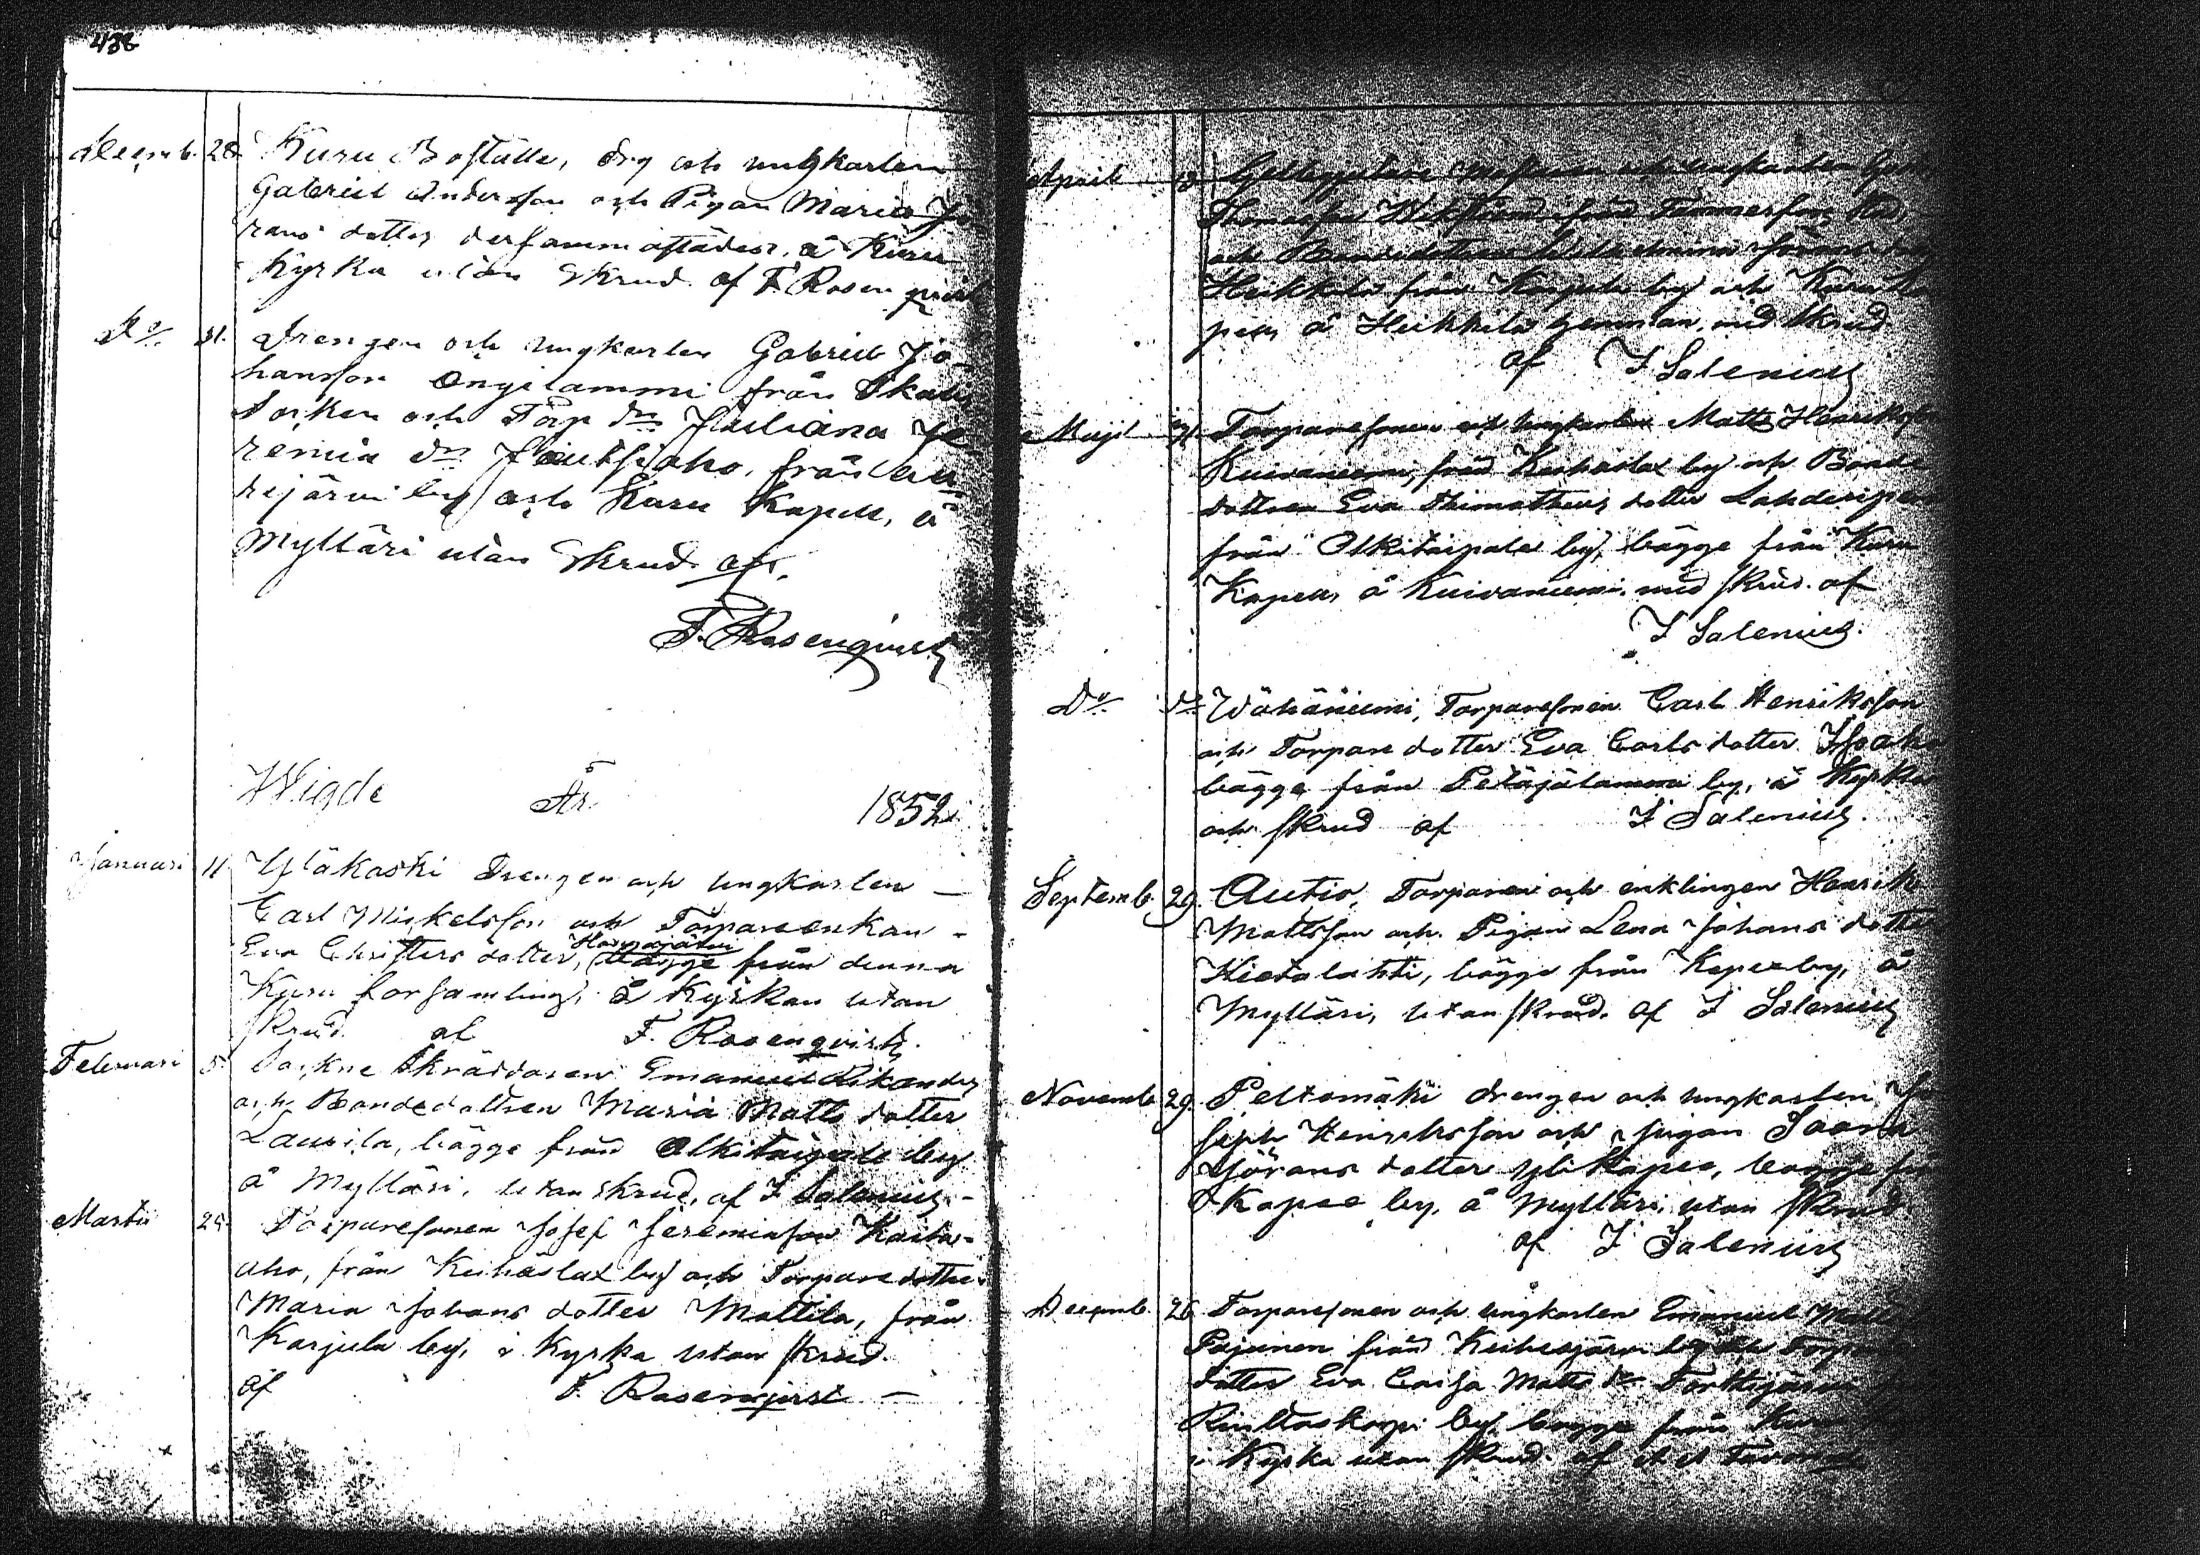 436
Decemb. 28. Kuru Boställe, drg och ungkarlen
Gabriel Andersson och Pigan Maria Jö
rans dotter dersammastädes, å Kuru
Kyrka utan Skrud af F. Rosenqvist
Do 31. Drengen och ungkarlen Gabriel Jo
hansson från Ikalis
Socken och Torp dr Juliana Je
remiæ dr från Au
rejärvi by och Kuru Kapell, å
Mylläri utan Skrud af.
F. Rosenqvist
Wigde År 1852
Januari 11 Yläkoski Drengen och ungkarlen –
Carl Mickelsson och Torpareenkan –
Eva Christers dotter, bägge från denna
Kuru församling, å Kyrkan utan
skrud. af F. Rosenqvist.
Februari 5 Sockne Skräddaren Emanuel Sikander
och Bondedottren Maria Matts dotter
Laurila, bägge från Olkitaipale by
å Mylläri, utan skrud, af I Salenius –
Martii 25. Torparesonen Josef Jeremiasson
aho, från Keihäslax by och Torparedottren
Maria Johans dotter Mattila, från
Karjula by, i Kyrka utan skrud.
af F. Rosenqvist –
April 12 och ungkarlen
Thomasson från Tammerfors Stad
och Bondedottren Wilhelmina Görans
Heikkilä från by och Kuru Ka
pell, å Heikkilä hemman, med skrud
af I Salenius
Maji 31 Torparesonen och ungkarlen Matts Henriksson
Kuivaniemi, från Keihäslax by och Bonde
dottren Eva Thimotheus dotter
från Olkitaipale by, bägge från Kuru
Kapell, å Kuivaniemi, med skrud. af
I Salenius.
Do do Wähäniemi, Torparesonen Carl Henriksson
och Torpare dotter Eva Carls dotter Isoaho
bägge från Petäjälammi by, i Kyrka
och skrud af I Salenius.
Septemb. 29. Autio, Torparen och enklingen Henrik
Mattsson och Pigan Lena Johans dotter
Hietalahti, bägge från Kapee by, å
Mylläri, utan skrud. af I Salenius
Novemb. 29. Peltomäki drengen och ungkarlen Jo
seph Henriksson och pigan
Görans dotter Yli Kapee, bägge från
Kapee by, å Mylläri, utan skrud
af I Salenius
Decemb. 26 Torparesonen och ungkarlen Emanuel Matts
Pajunen från Keihesjärvi by och Torpare
dotter Eva Caisa Matts dr
by, bägge från Kuru
i Kyrka utan skrud. af